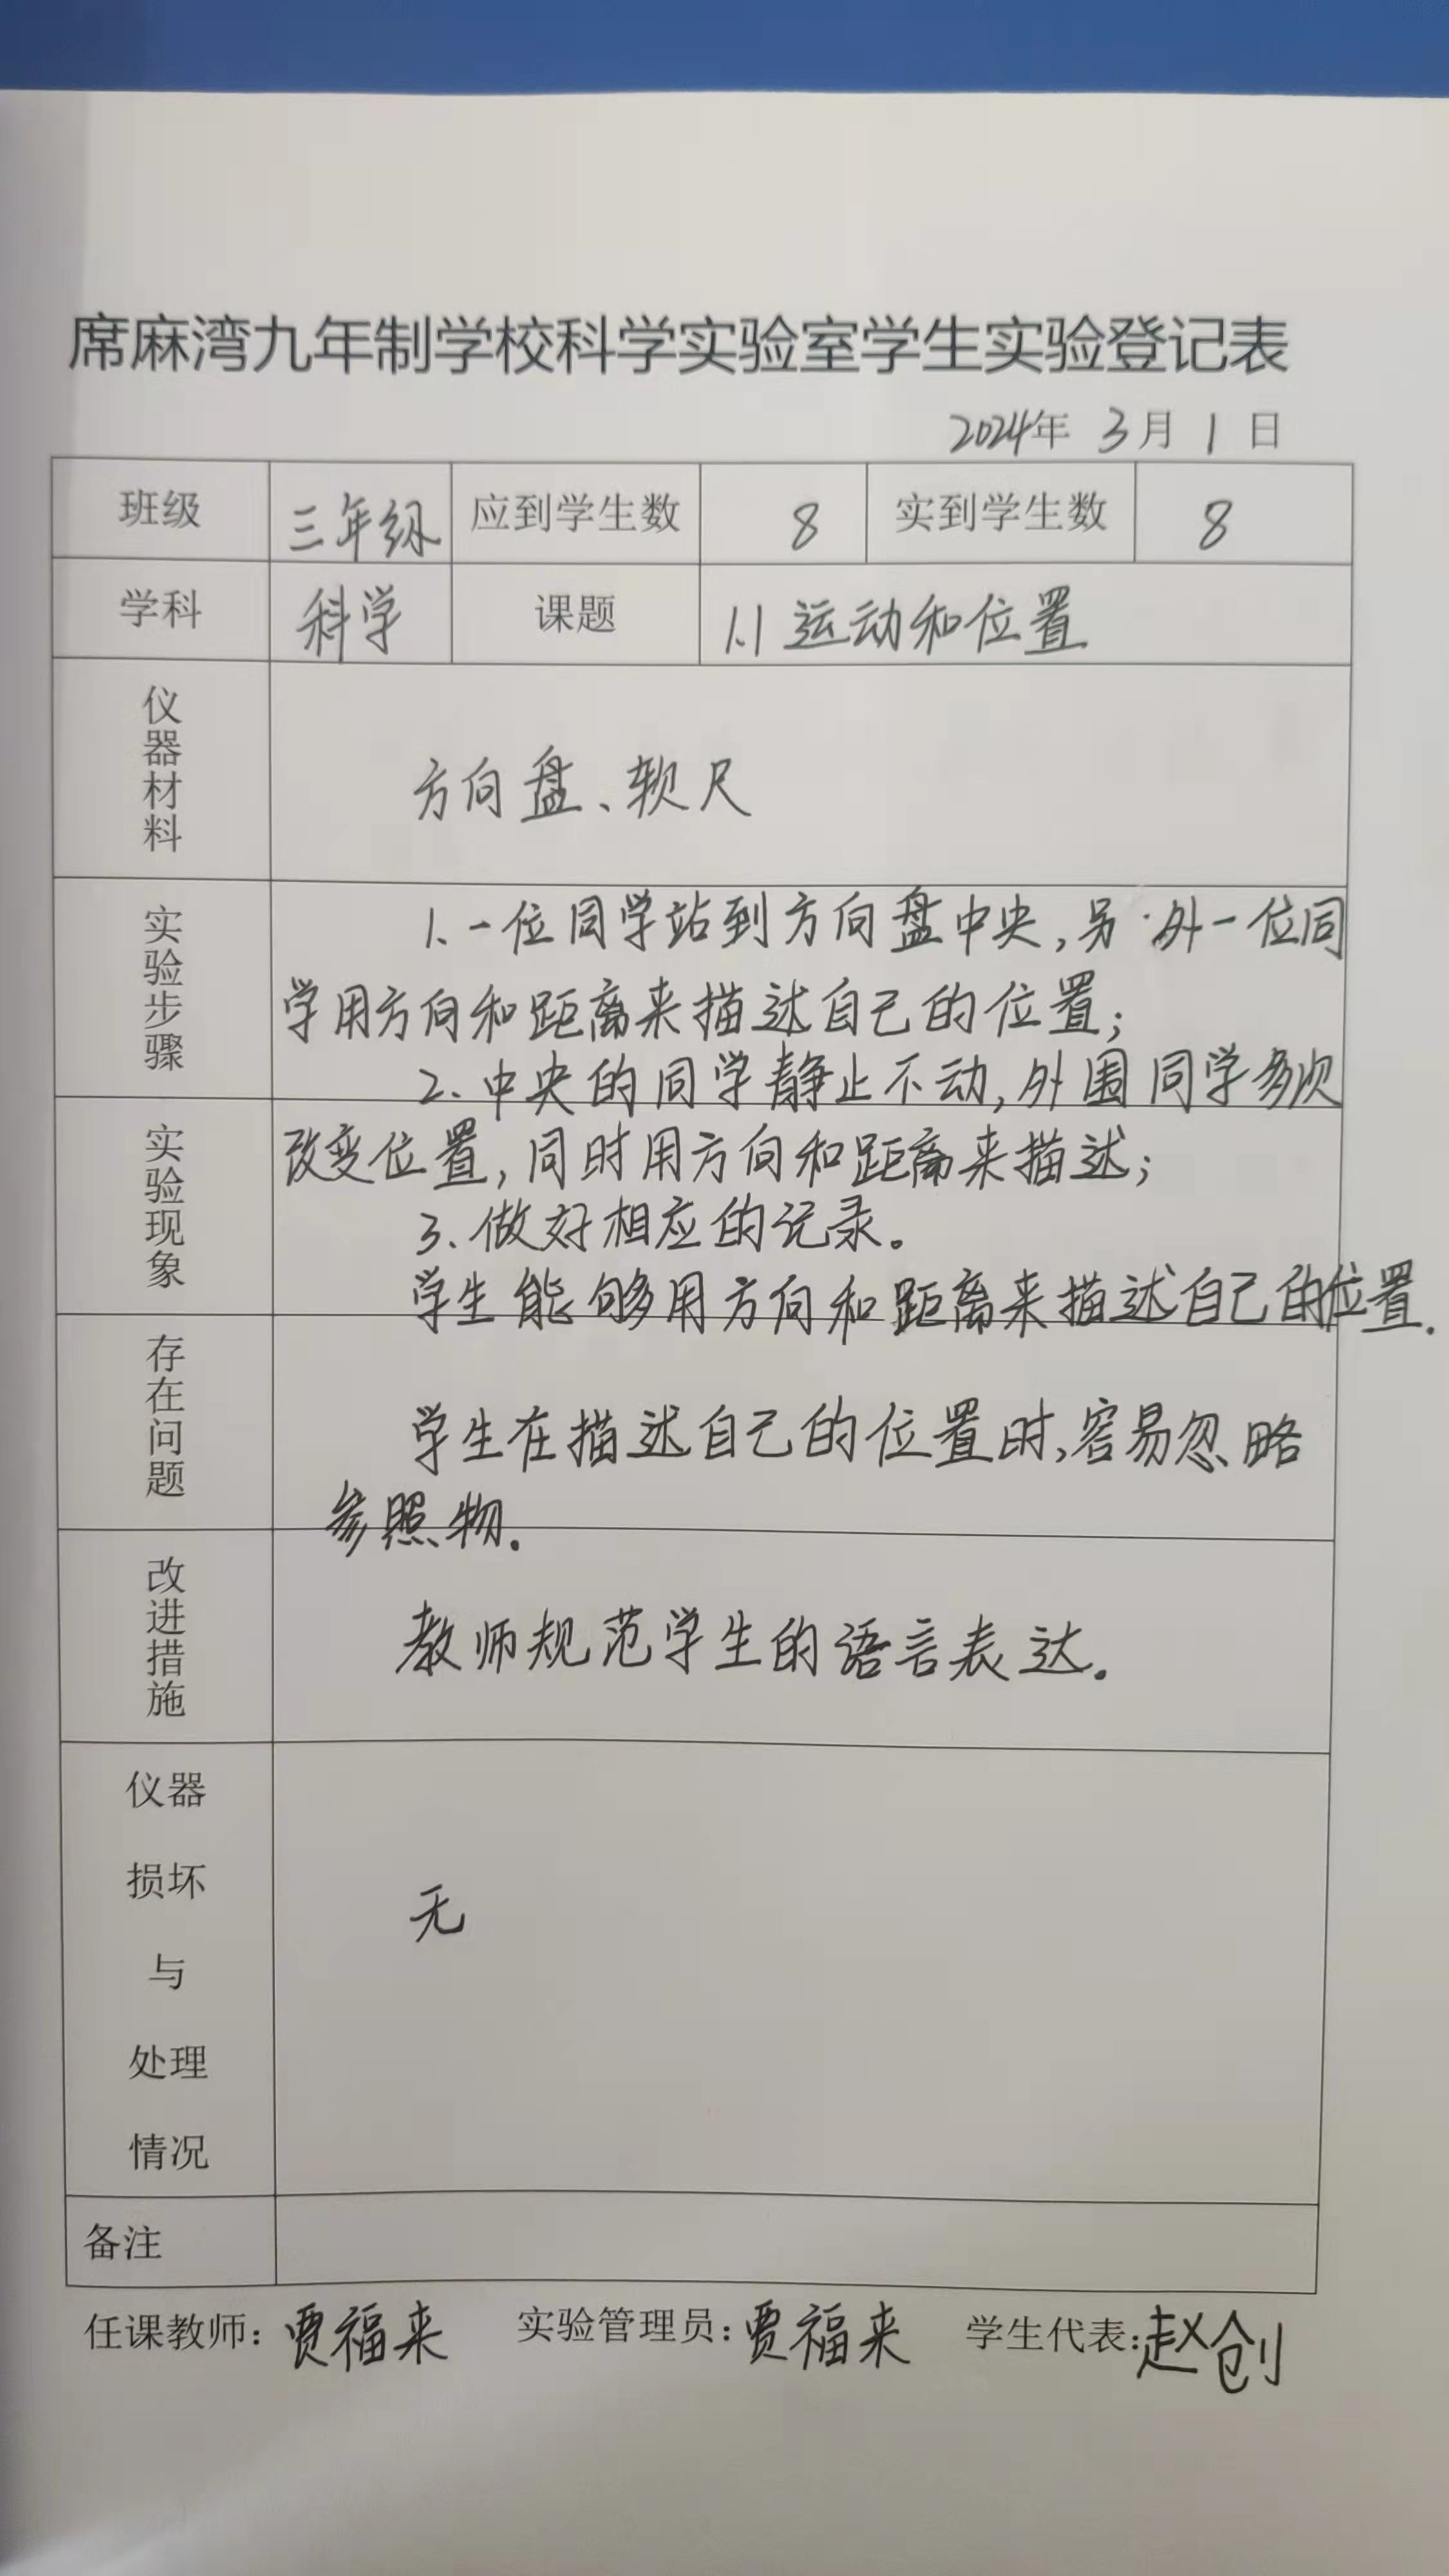 席麻湾九年制学校科学实验室学生实验登记表
2024年 3月 1日
班级 三年级 应到学生数 8 实到学生数 8
学科 科学 课题 1.1 运动和位置
仪器材料 方向盘、软尺
实验步骤
1.一位同学站到方向盘中央,另外一位同
学用方向和距离来描述自己的位置;
2.中央的同学静止不动,外围同学多次
实验现象
改变位置,同时用方向和距离来描述;
3.做好相应的记录。
学生能够用方向和距离来描述自己的位置.
存在问题
学生在描述自己的位置时,容易忽略
参照物.
改进措施 教师规范学生的语言表达.
仪器
损坏
与
处理
情况
无
备注
任课教师:贾福来 实验管理员:贾福来 学生代表:赵创